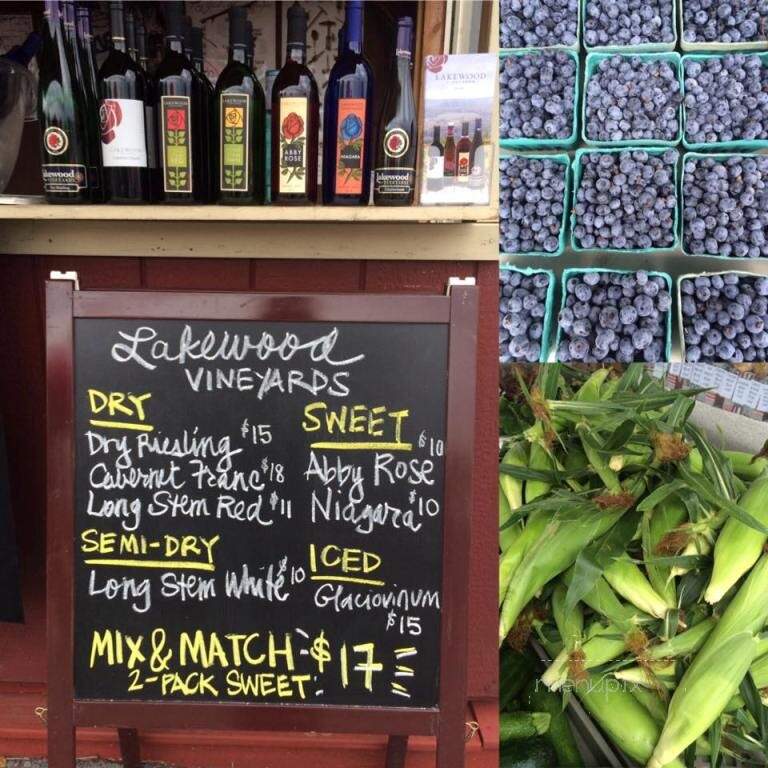 LAKEWOOD
ABBY
ROSE
NIAGARA
Lakewood
Lakewood
Lakewood
VINEYARDS
DRY
Dry Riesling $15
Cabernet Franc $18
Long Stem Red $11
SEMI-DRY
Long Stem White $10
SWEET
Abby Rose $10
Niagara $10
ICED
Glaciovinum
$15
MIX & MATCH $17
2-PACK SWEET:
menupix